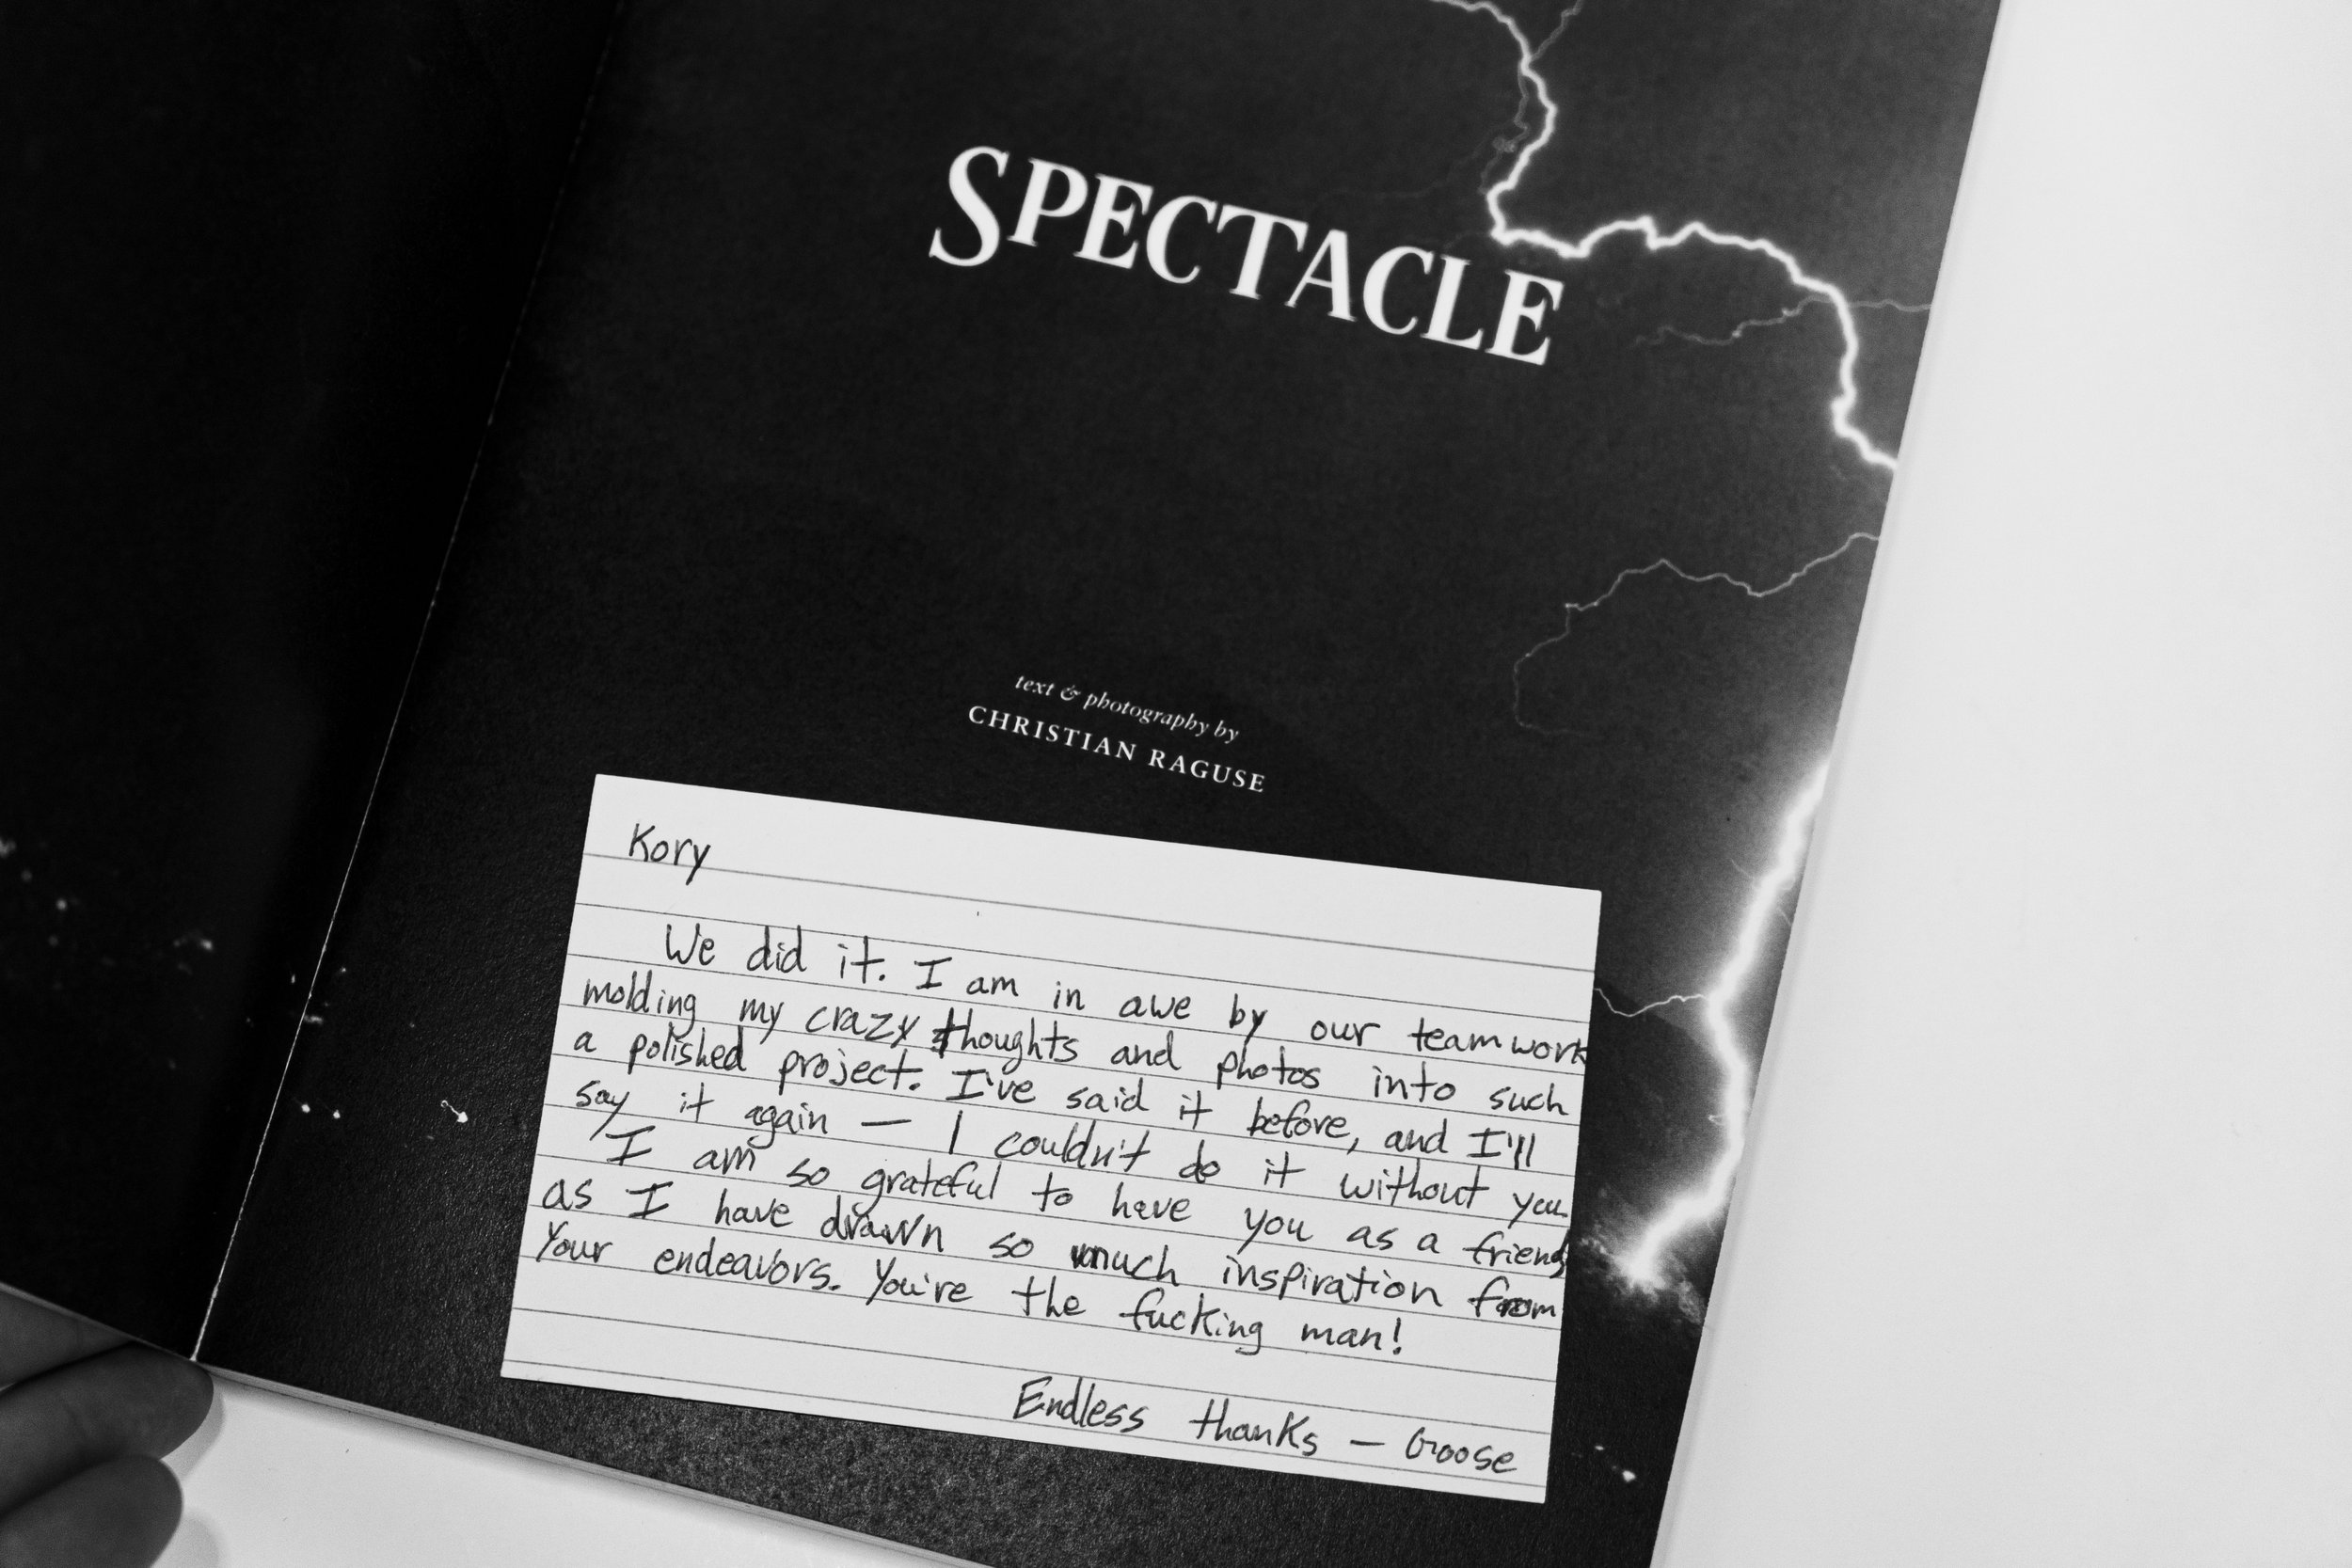 SPECTACLE
text & photography by
CHRISTIAN RAGUSE
Kory
We did it. I am in awe by our teamwork
molding my crazy thoughts and photos into such
a polished project. I've said it before, and I'll
say it again — I couldn't do it without you
I am so grateful to have you as a friend
as I have drawn so much inspiration from
Your endeavors. You're the fucking man!
Endless thanks — Goose